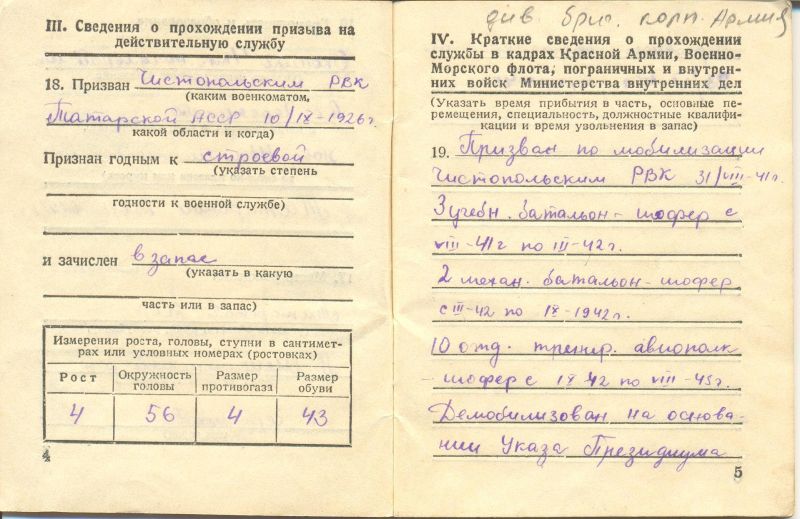 III. Сведения о прохождении призыва на
действительную службу
18. Призван Чистопольским РВК
(каким военкоматом,
Татарской АССР 10/IX-1926г.
какой области и когда)
Признан годным к строевой
(указать степень
годности к военной службе)
и зачислен в запас
(указать в какую
часть или в запас)
Измерения роста, головы, ступни в сантимет-
рах или условных номерах (ростовках)
Рост Окружность головы Размер противогаза Размер обуви
4 56 4 43
4
див. бриг. корп. Армия
IV. Краткие сведения о прохождении
службы в кадрах Красной Армии, Военно-
Морского флота, пограничных и внутрен-
них войск Министерства внутренних дел
(Указать время прибытия в часть, основные пе-
ремещения, специальность, должностные квалифи-
кации и время увольнения в запас)
19. Призван по мобилизации
Чистопольским РВК 31/VIII-41г.
3 учебн. батальон - шофер с
VIII-41г по III-42г.
2 механ. батальон - шофер
с III-42 по IX-1942г.
10 отд. тренир. авиополк
- шофер с IX 42 по VIII-45г.
Демобилизован на основа-
нии Указа Президиума
5